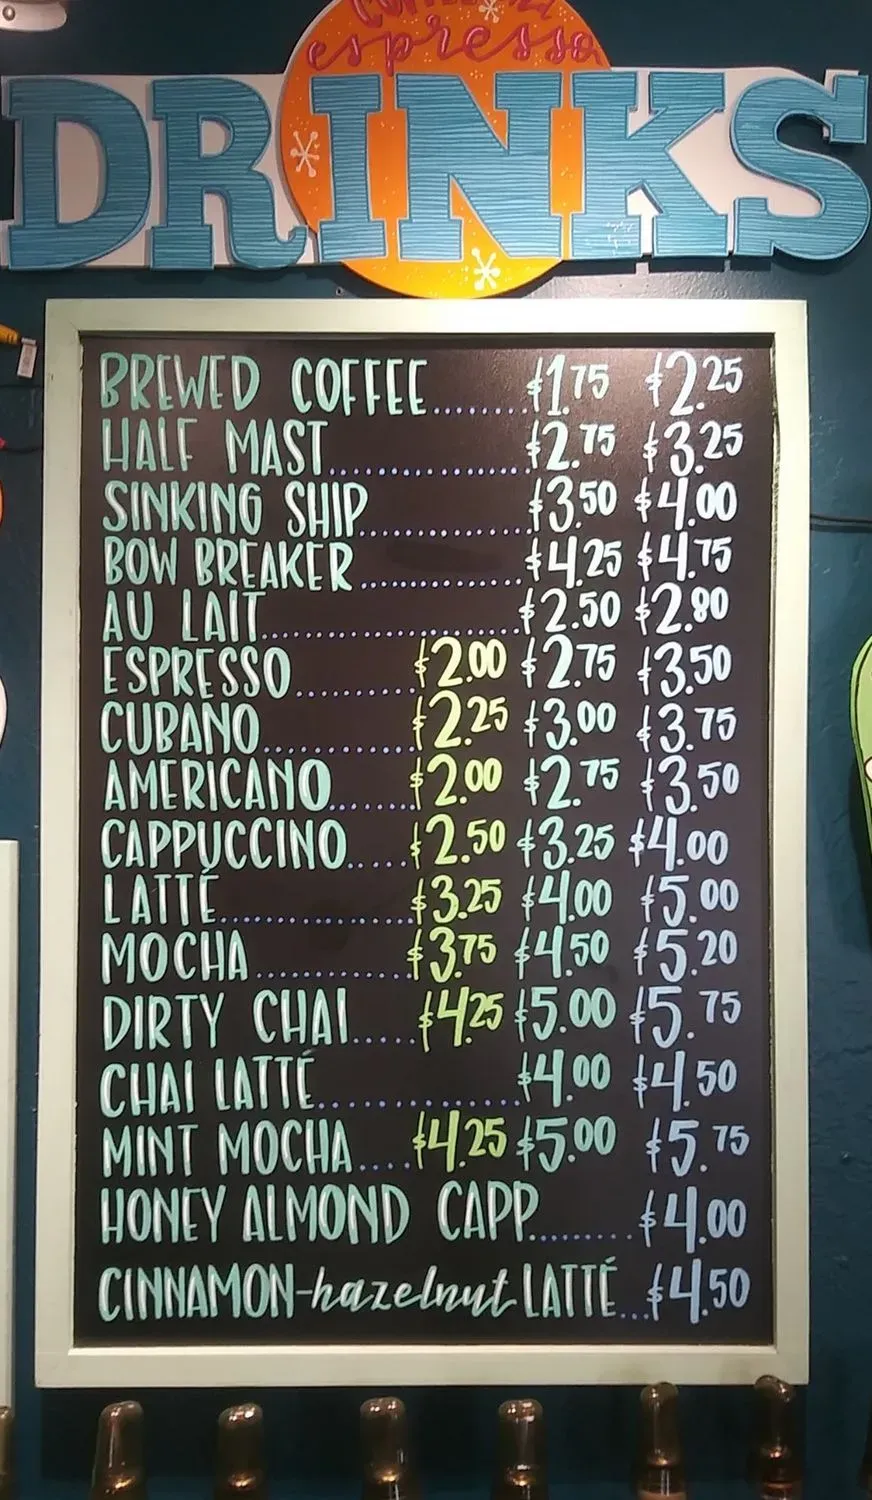 espresso
DRINKS
BREWED COFFEE.......$1.75 $2.25
HALF MAST..............$2.75 $3.25
SINKING SHIP............$3.50 $4.00
BOW BREAKER............$4.25 $4.75
AU LAIT..................$2.50 $2.80
ESPRESSO.........$2.00 $2.75 $3.50
CUBANO............$2.25 $3.00 $3.75
AMERICANO......$2.00 $2.75 $3.50
CAPPUCCINO.....$2.50 $3.25 $4.00
LATTÉ..............$3.25 $4.00 $5.00
MOCHA............$3.75 $4.50 $5.20
DIRTY CHAI.....$4.25 $5.00 $5.75
CHAI LATTÉ..............$4.00 $4.50
MINT MOCHA....$4.25 $5.00 $5.75
HONEY ALMOND CAPP........$4.00
CINNAMON-hazelnut LATTÉ...$4.50